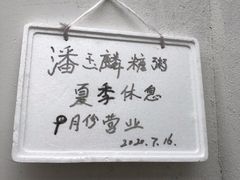 潘玉麟糖粥
夏季休息
9月份营业
2020.7.16.